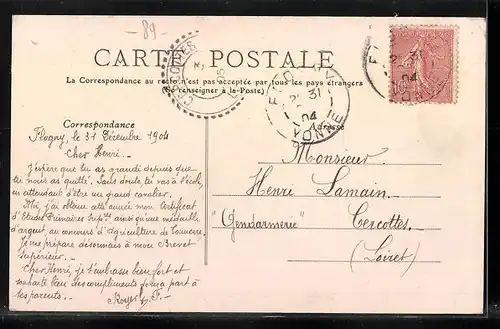 - 89 -
CARTE POSTALE
La Correspondance au recto n'est pas acceptée par tous les pays étrangers
(Se renseigner à la Poste)
CERCOTTES
FLOGNY
31
04
YONNE
Correspondance
Adresse
Flogny, le 31 Décembre 1904
Cher Henri.-
J'espère que tu as grandi depuis que
tu nous as quitté. Sans doute tu vas à l'école,
en attendant d'être un grand cavalier.
Moi, j'ai obtenu cette année mon Certificat
d'Etudes Primaires Supres ainsi qu'une médaille
d'argent au concours d'Agriculture de Tonnerre.
Je me prépare désormais à mon Brevet
Supérieur.-
Cher Henri, je t'embrasse bien fort et
souhaite bien des compliments de ma part à
tes parents.-
Monsieur
Henri Lamain
"Gendarmerie" Cercottes
(Loiret)